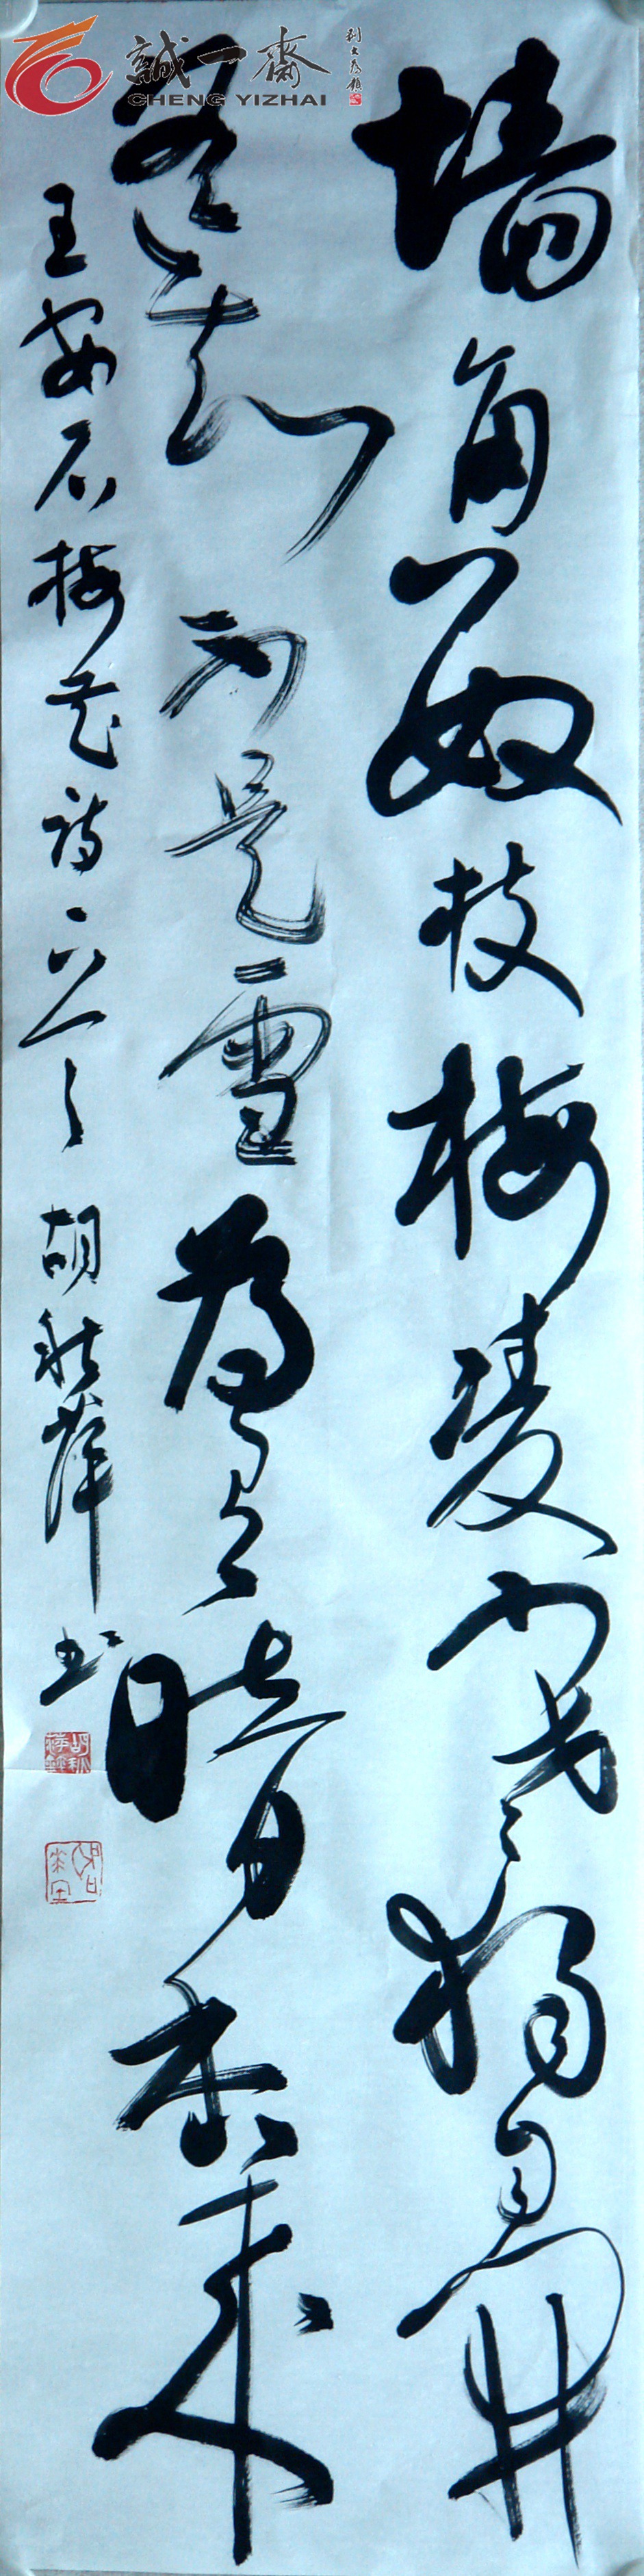 誠一齋
CHENG YIZHAI
墙角数枝梅凌寒独自開
遥知不是雪為有暗香来
王安石梅花诗
胡秋萍书